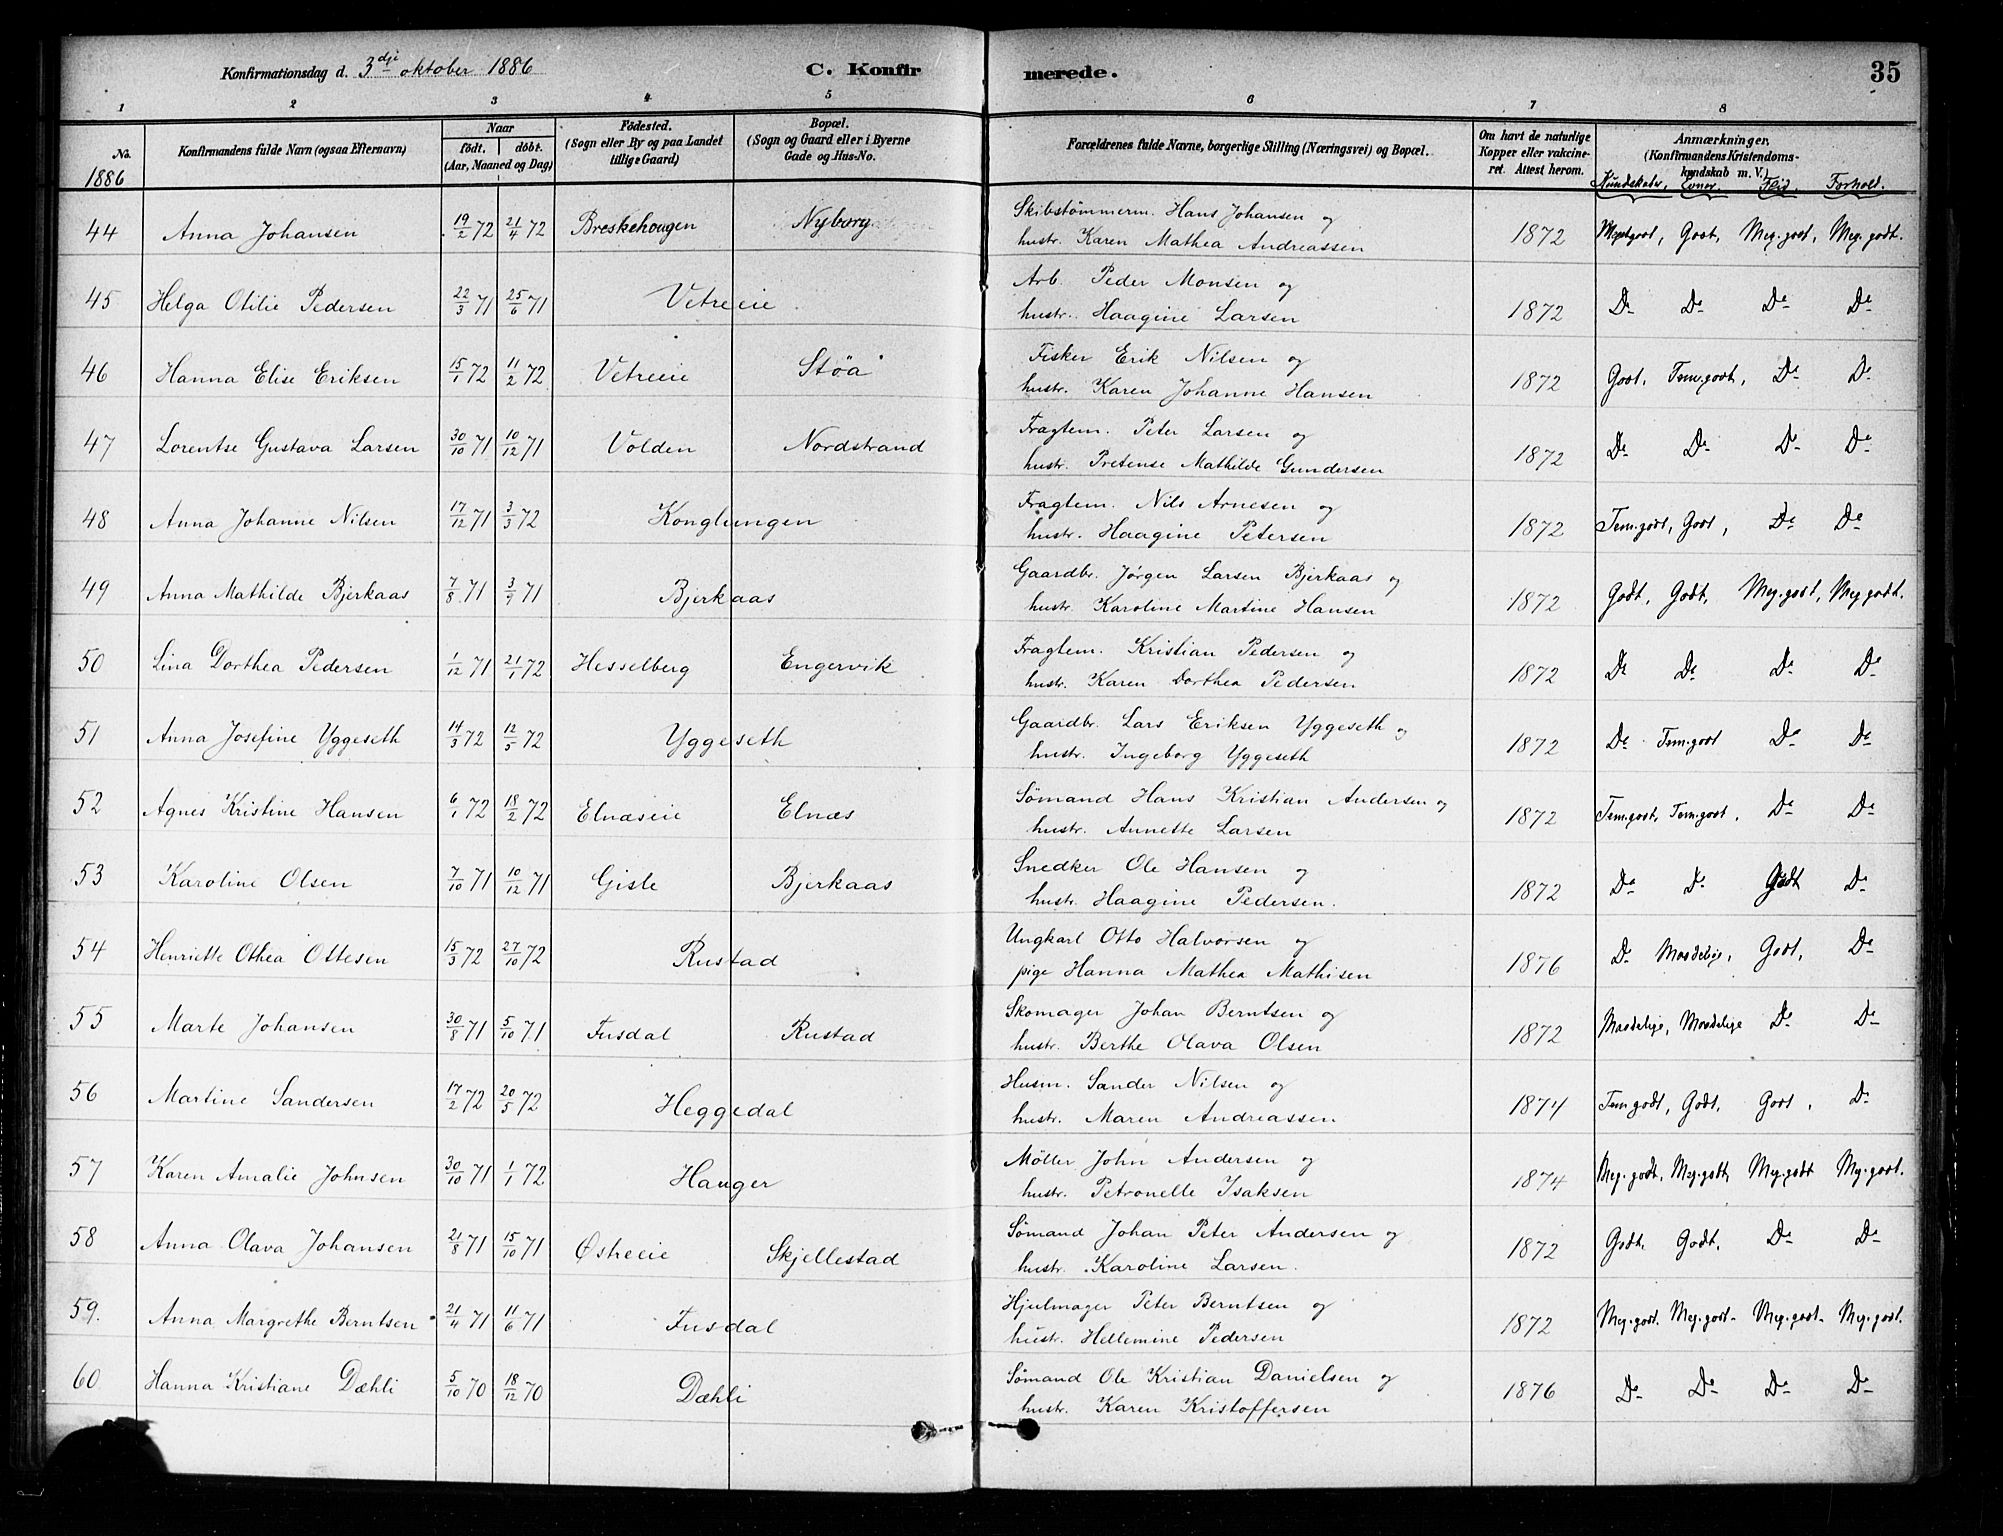 Konfirmationsdag d. 3dje oktober 1886 C. Konfirmerede. 35
1 2 3 4 5 6 7 8
No. Konfirmandens fulde Navn (ogsaa Efternavn) Naar födt. döbt. (Aar, Maaned og Dag) Födested. (Sogn eller By og paa Landet tillige Gaard) Bopæl. (Sogn og Gaard eller i Byerne Gade og Hus-No. Forældrenes fulde Navne, borgerlige Stilling (Næringsvei) og Bopæl. Om havt de naturlige Kopper eller vakcineret. Attest herom. Anmærkninger. (Konfirmandens Kristendomskundskab m. V.)
1886 Kundskaber, Evner. Flid. Forhold.
44 Anna Johansen 19/2 72 21/4 72 Breskehougen Nyborg Skibstømmerm. Hans Johansen og
hustr. Karen Mathea Andreassen 1872 Megetgodt, Godt, Meg. godt, Meg. godt.
45 Helga Otilie Pedersen 22/3 71 25/6 71 Vetreeie Arb. Peder Monsen og
hustr. Haagine Larsen 1872 Do Do Do Do
46 Hanna Elise Eriksen 15/1 72 11/2 72 Vetreeie Støa Fisker Erik Nilsen og
hustr. Karen Johanne Hansen 1872 Godt, Tem. godt, Do Do
47 Lorentse Gustava Larsen 30/10 71 10/12 71 Volden Nordstrand Fragtem. Peter Larsen og
hustr. Pretense Mathilde Gundersen 1872 Do Do Do Do
48 Anna Johanne Nilsen 17/12 71 3/3 72 Konglungen Fragtem. Nils Arnesen og
hustr. Haagine Petersen 1872 Tem. godt, Godt, Do Do
49 Anna Mathilde Bjerkaas 7/8 71 3/9 71 Bjerkaas Gaardbr. Jørgen Larsen Bjerkaas og
hustr. Karoline Martine Hansen 1872 Godt, Godt, Meg. godt, Meg godt.
50 Lina Dorthea Pedersen 1/12 71 21/1 72 Hesselberg Engervik Fragtem. Kristian Pedersen og
hustr. Karen Dorthea Pedersen 1872 Do Do Do Do
51 Anna Josefine Yggeseth 14/3 72 12/5 72 Yggeseth Gaardbr. Lars Eriksen Yggeseth og
hustr. Ingeborg Yggeseth 1872 Do Tem. godt Do Do
52 Agnes Kristine Hansen 6/1 72 18/2 72 Elnæseie Elnæs Sømand Hans Kristian Andersen og
hustr. Annette Larsen 1872 Tem. godt, Tem. godt, Do Do
53 Karoline Olsen 7/10 71 10/12 71 Gisle Bjerkaas Snedker Ole Hansen og
hustr. Haagine Pedersen. 1872 Do Do Godt Do
54 Henriette Othea Ottesen 15/3 72 27/10 72 Rustad Ungkarl Otto Halvorsen og
pige Hanna Mathea Mathisen 1876 Do Maadelig, Godt, Do
55 Marte Johansen 30/8 71 5/10 71 Fusdal Rustad Skomager Johan Berntsen og
hustr. Berthe Olava Olsen 1872 Maadelige, Maadelige Do Do
56 Martine Sandersen 17/2 72 20/5 72 Heggedal Husm. Sander Nilsen og
hustr. Maren Andreassen 1874 Tem godt, Godt, Godt, Do
57 Karen Amalie Johnsen 30/10 71 1/1 72 Hauger Møller John Andersen og
hustr. Petronelle Isaksen 1874 Meg. godt, Meg. godt, Meg. godt Meg. godt.
58 Anna Olava Johansen 21/8 71 15/10 71 Østreeie Skjellestad Sømand Johan Peter Andersen og
hustr. Karoline Larsen. 1872 Godt, Godt, Do Do
59. Anna Margrethe Berntsen 21/4 71 11/6 71 Fusdal Hjulmager Peter Berntsen og
hustr. Hellemine Pedersen 1872 Meg. godt. Meg. godt. Meg. godt. Meg. godt.
60 Hanna Kristiane Dæhli 5/10 70 18/12 70 Dæhli Sømand Ole Kristian Danielsen og
hustr. Karen Kristoffersen 1876 Do Do Do Do